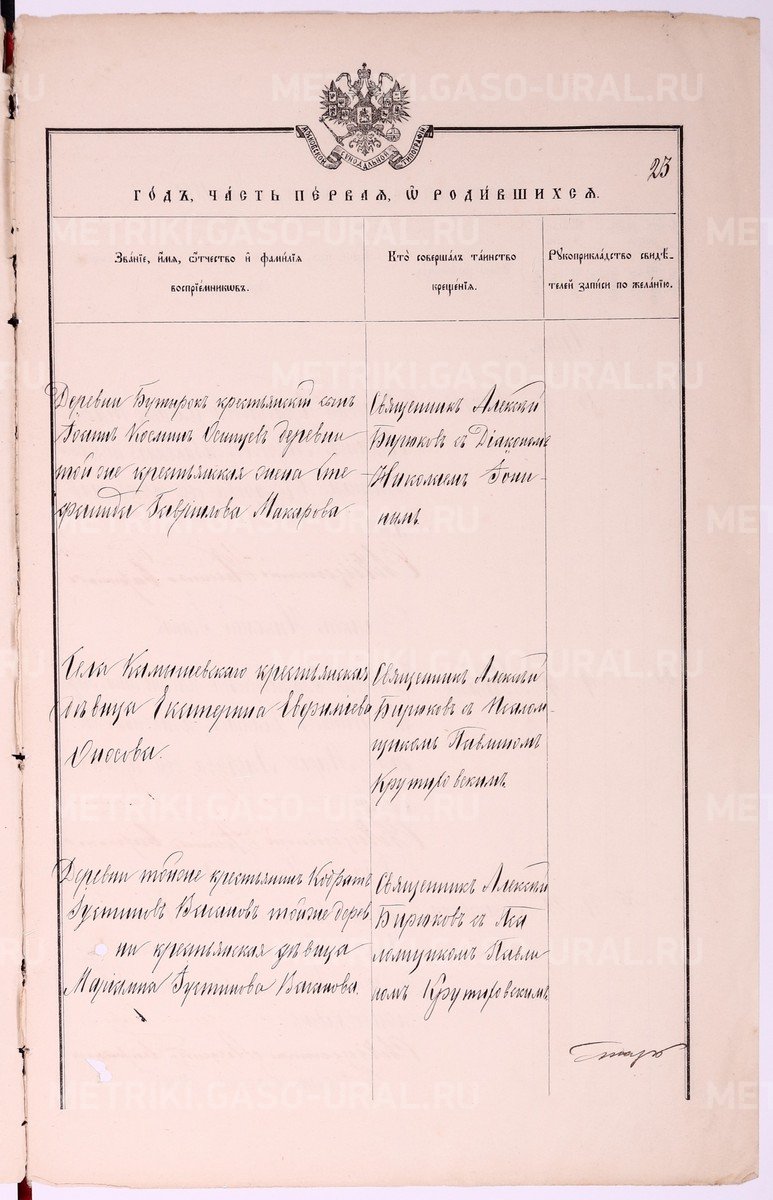 METRIKI.GASO-URAL.RU
МОСКОВСКОЙ СѴНОДАЛЬНОЙ ТИПОГРАФІИ
23
ГО́ДЪ, ЧА́СТЬ ПЕ́РВАѦ, Ѡ҆ РОДИ́ВШИХСѦ.
Зва́нїе, и҆́мѧ, ѻ҆́тчество и҆ фами́лїѧ
воспрїе́мникѡвъ.
Кто̀ соверша́лъ та́инство
креще́нїѧ.
Рꙋкоприкла́дство свидѣ́-
телей за́писи по жела́нїю.
Деревни Бутырокъ крестьянскій сынъ
Іоаннъ Космин Осинцев деревни
той же крестьянская жена Сте
фанида Гаврилова Макарова
Священникъ Алексій
Бирюковъ съ Діакономъ
Николаемъ
нимъ
Села Камышевскаго крестьянская
дѣвица Екатерина Евфиміева
Священникъ Алексій
Бирюковъ съ Псалом-
щикомъ Павлиномъ
Крутиховскимъ
Деревни тойже крестьянинъ Кодратъ
Іустиновъ Ваганов тойже дерев
ни крестьянская дѣвица
Маріамна Іустинова Ваганова.
Священникъ Алексій
Бирюковъ съ Пса
ломщикомъ Павли
номъ Крутиховскимъ